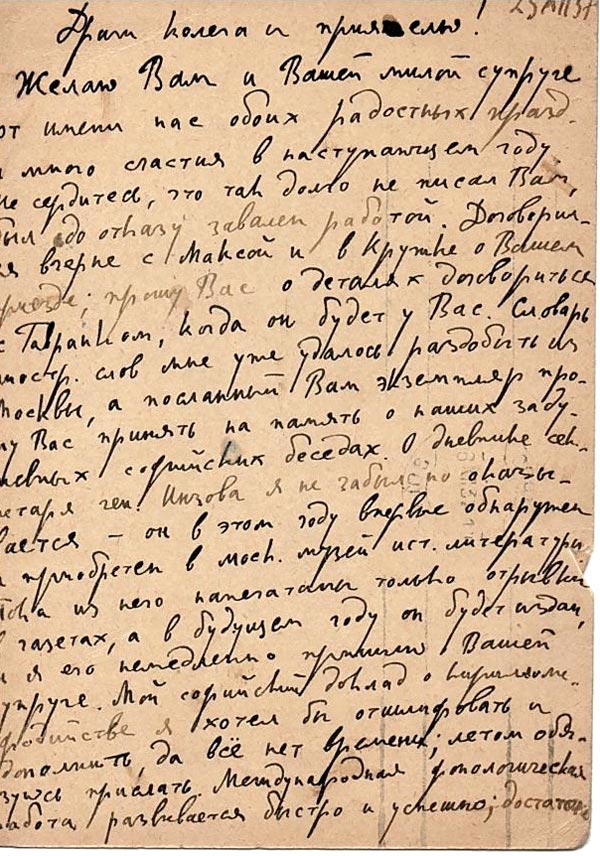 25 XII 37
Драги колега и приятелю!
Желаю Вам и Вашей милой супруге
от имени нас обоих радостных празд-
и много счастия в наступающем году.
Не сердитесь, что так долго не писал Вам,
был до отказу завален работой. Договорил-
ся вчерне с Максой и в Кружке о Вашем
приезде; прошу Вас о деталях договориться
с Тарапком, когда он будет у Вас. Словарь
иностр. слов мне уже удалось раздобыть из
Москвы, а посланный Вам экземпляр про-
шу Вас принять на память о наших заду-
шевных софийских беседах. О дневнике сек-
ретаря ген. Инзова я не забыл, но оказы-
вается – он в этом году впервые обнаружен
и приобретен в моск. музей ист. литературы
Пока из него напечатаны только отрывки
в газетах, а в будущем году он будет издан,
и я его немедленно пришлю Вашей
супруге. Мой софийский доклад о кирилломе-
фодийстве я хотел бы отшлифовать и
дополнить, да всё нет времени; летом обя-
зуюсь прислать. Международная фонологическая
работа развивается быстро и успешно; достаточн